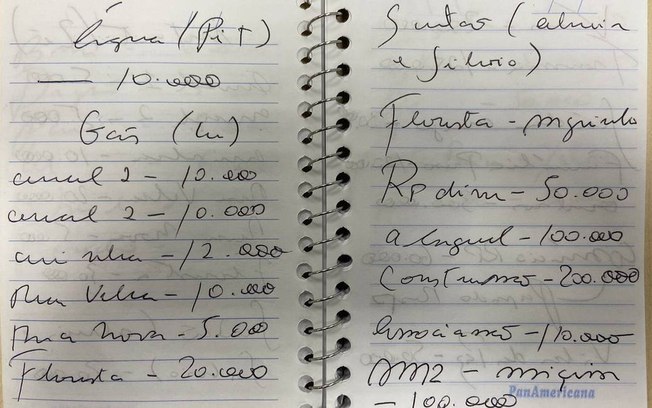 Água (Pit)
— 10.000
Gás (Lu)
canal 2 - 10.000
canal 2 - 10.000
- 12.000
Rua Velha - 10.000
Rua Nova - 5.000
Floresta - 20.000
(
e Silvio)
Floresta -
Rp dim - 50.000
aluguel - 100.000
Construssão - 200.000
Associassão - 110.000
AM2 -
- 100.000
PanAmericana